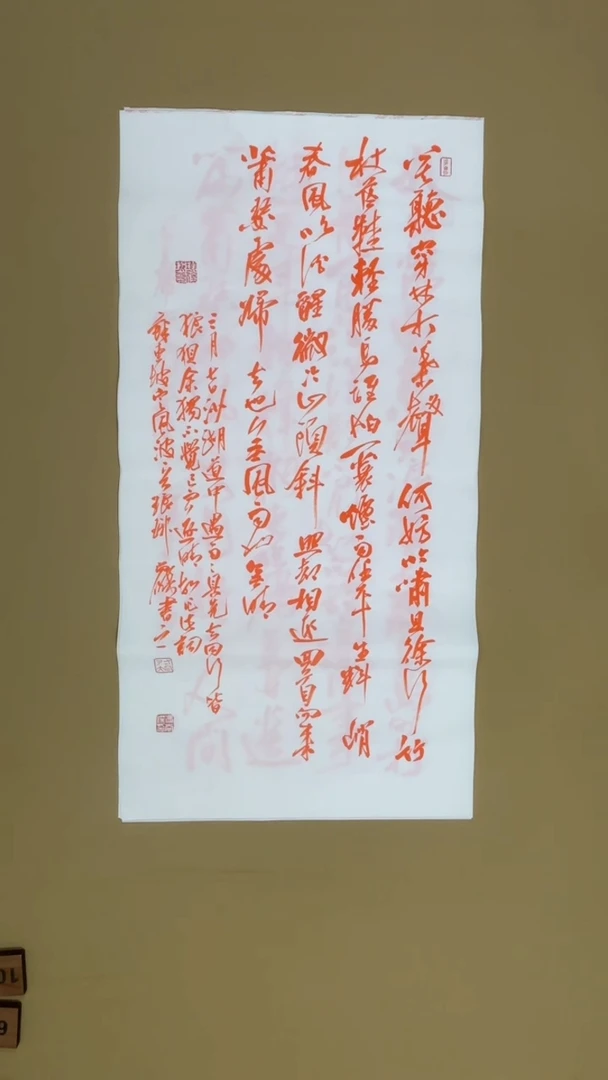 莫聽穿林打葉聲何妨吟嘯且徐行竹
杖芒鞵輕勝馬誰怕一蓑煙雨任平生料峭
春風吹酒醒微冷山頭斜照却相迎回首向來
蕭瑟處歸去也無風雨也無晴
三月七日沙湖道中遇雨雨具先去同行皆
狼狽余獨不覺已而遂晴故作此詞
東坡定風波於琅琊書之
10